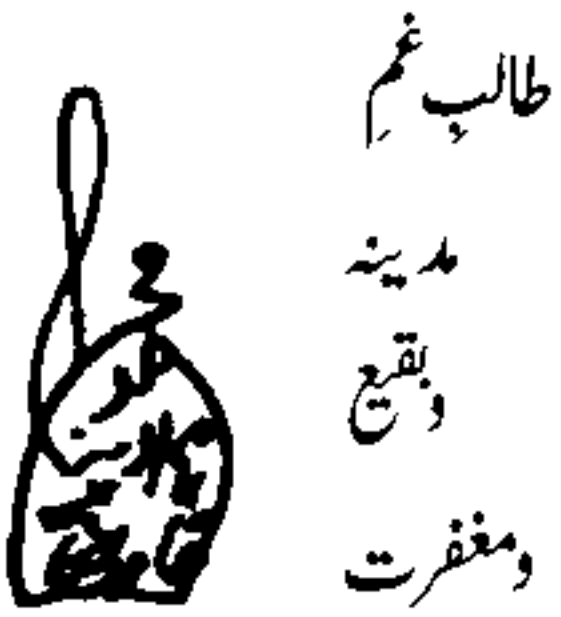 طالبِ غمِ
مدینہ
و بقیع
و مغفرت